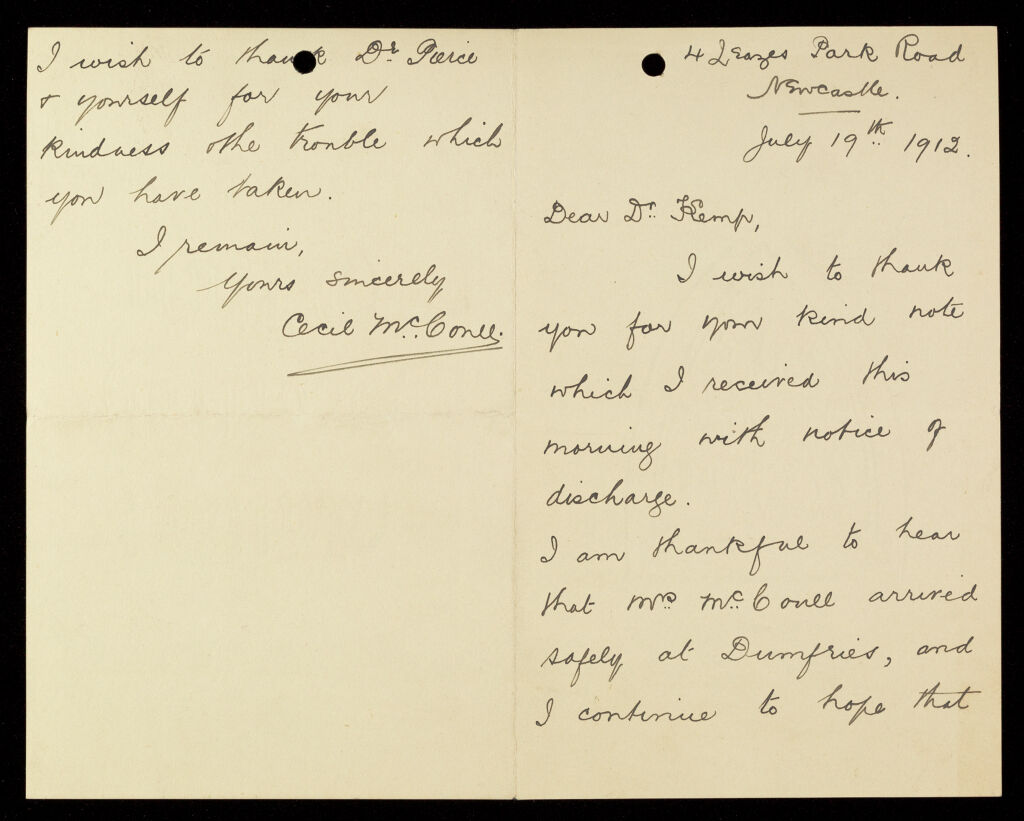 4 Leazes Park Road
Newcastle.
July 19th. 1912.
Dear Dr. Kemp,
I wish to thank
you for your kind note
which I received this
morning with notice of
discharge.
I am thankful to hear
that Mrs Mc. Conell arrived
safely at Dumfries, and
I continue to hope that
I wish to thank Dr. Pierce
& yourself for your
kindness & the trouble which
you have taken.
I remain,
Yours sincerely
Cecil Mc. Conell.